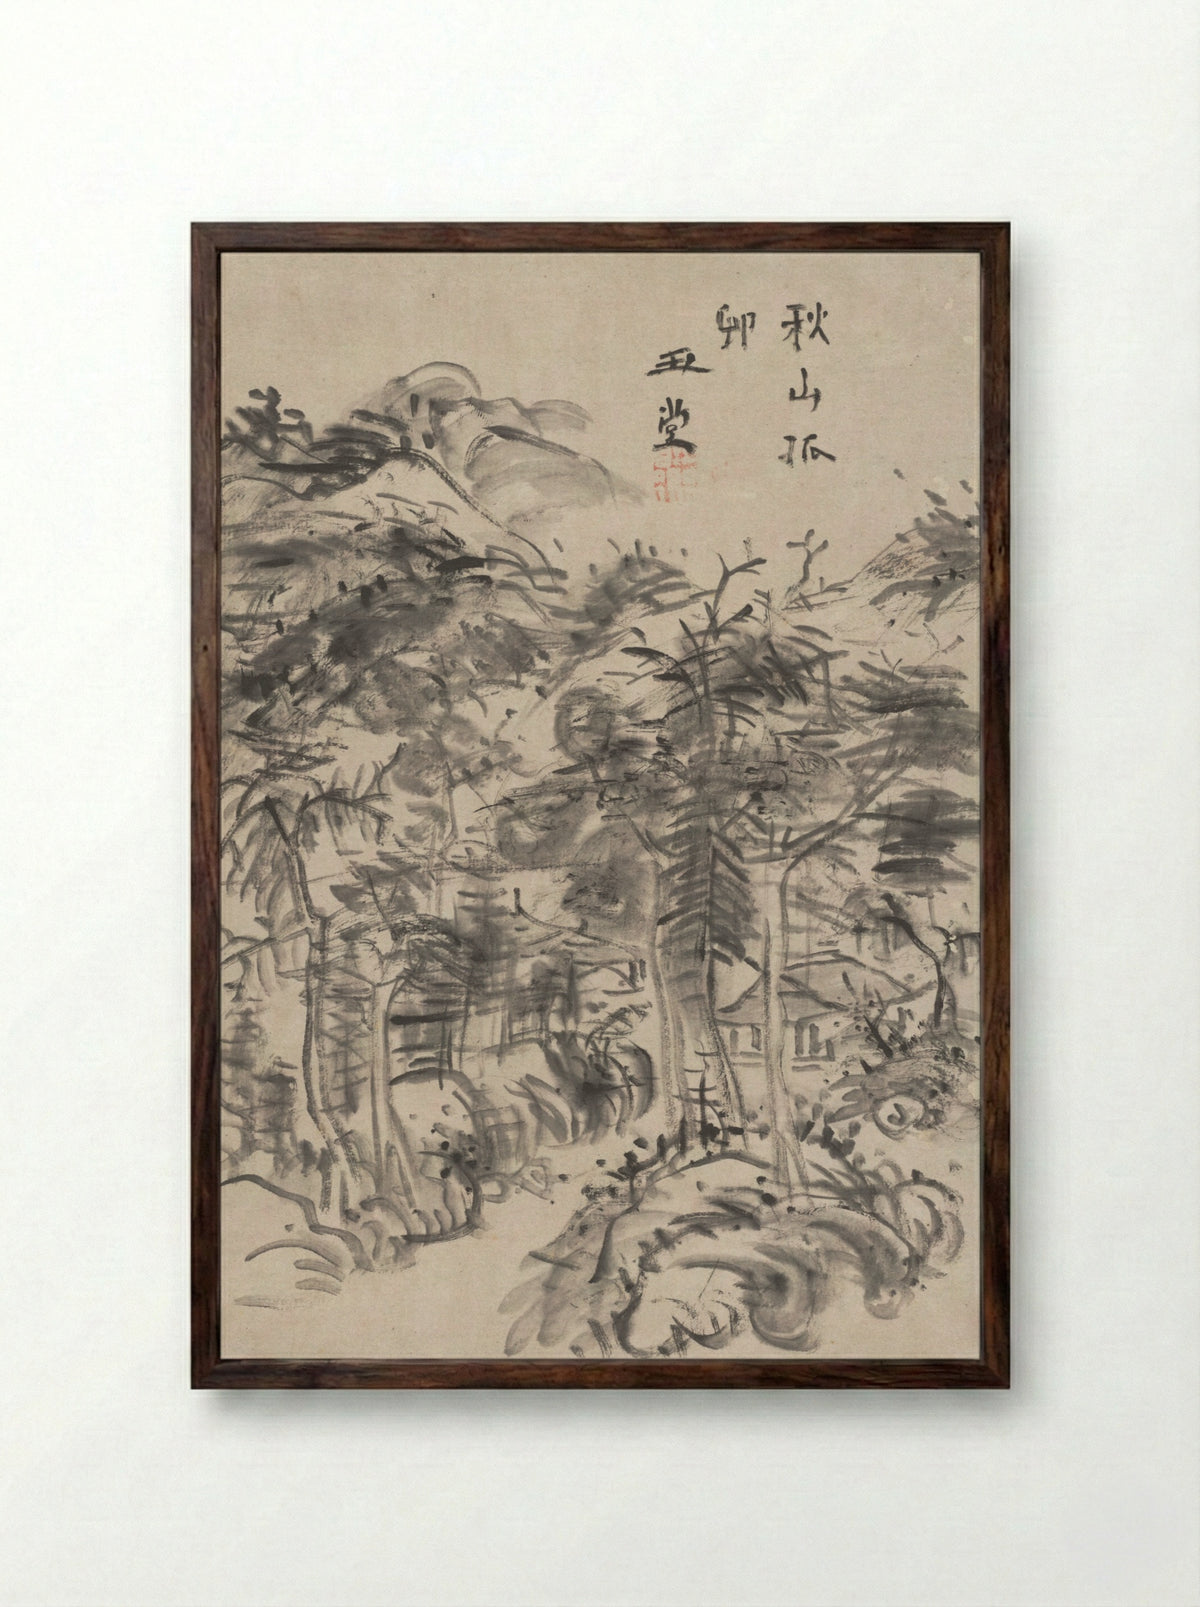 秋山孤
卯
玉堂